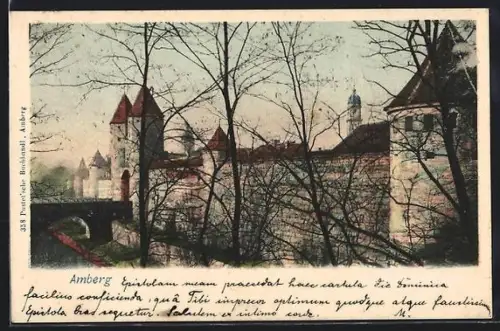 358 Pustet'sche Buchhandl., Amberg
Amberg
Epistolam meam praecedat haec cartula Die Dominica
facilius conficienda, quâ Tibi imprecor optimum quodque atque faustissimum
Epistola
Salutem ex intimo corde.
M.